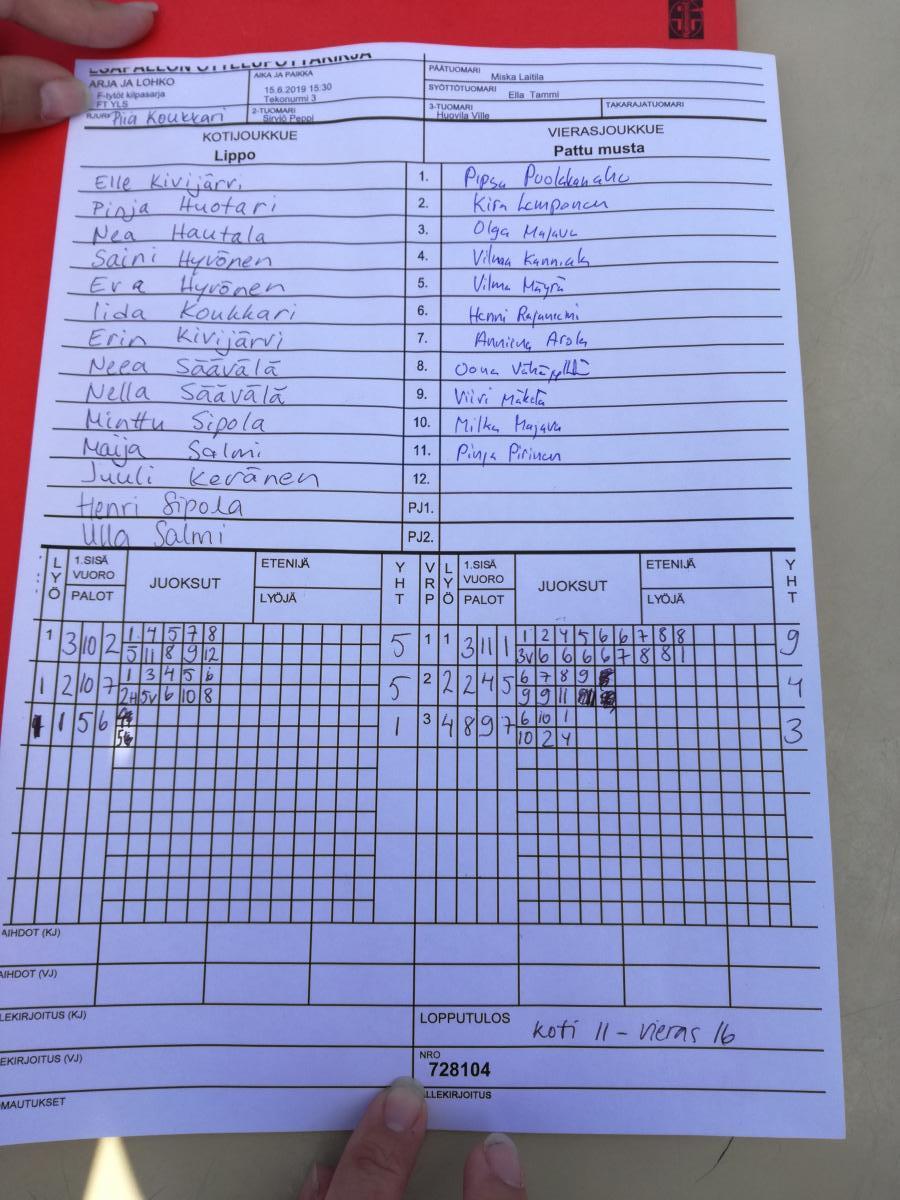 ESÄPALLON OTTELUPÖYTÄKIRJA
ARJA JA LOHKO
F-tytöt kilpasarja
FT YLS
AIKA JA PAIKKA
15.6.2019 15:30
Tekonurmi 3
PÄÄTUOMARI
Miska Laitila
SYÖTTÖTUOMARI
Ella Tammi
Piia Koukkari
2-TUOMARI
Sirviö Peppi
3-TUOMARI
Huovila Ville
TAKARAJATUOMARI
KOTIJOUKKUE
Lippo
VIERASJOUKKUE
Pattu musta
Elle Kivijärvi 1. Pipsa Puolakanaho
Pinja Huotari 2. Kira Lemponen
Nea Hautala 3. Olga Majava
Saini Hyvönen 4. Vilma Kanniala
Eva Hyvönen 5. Vilma Mäyrä
Iida Koukkari 6. Henni Rajaniemi
Erin Kivijärvi 7. Anniina Arola
Neea Säävälä 8. Oona
Nella Säävälä 9. Viivi Mäkelä
Minttu Sipola 10. Milka Majava
Maija Salmi 11. Pinja Pirinen
Juuli Keränen 12.
Henri Sipola PJ1.
Ulla Salmi PJ2.
LYÖ 1.SISÄ VUORO PALOT JUOKSUT ETENIJÄ LYÖJÄ YHT VRP LYÖ 1.SISÄ VUORO PALOT JUOKSUT ETENIJÄ LYÖJÄ YHT
1 3 10 2 1 4 5 7 8 5 1 1 3 11 1 1 2 4 5 6 6 7 8 8 9
5 11 8 9 12 3V 6 6 6 6 7 8 8 1
1 2 10 7 1 3 4 5 6 5 2 2 2 4 5 6 7 8 9 4
2H 5V 6 10 8 9 9 11
1 5 6 1 3 4 8 9 7 6 10 1 3
10 2 4
AIHDOT (KJ)
AIHDOT (VJ)
LEKIRJOITUS (KJ)
LOPPUTULOS
koti 11 - vieras 16
EKIRJOITUS (VJ)
NRO
728104
OMAUTUKSET
ALLEKIRJOITUS